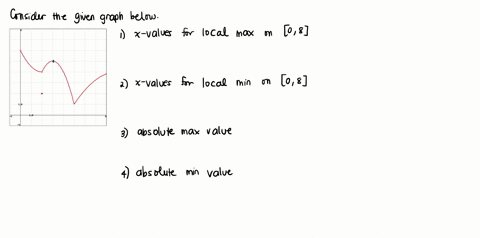 Consider the given graph below.
1) x-values for local max on [0,8]
2) x-values for local min on [0,8]
3) absolute max value
4) absolute min value